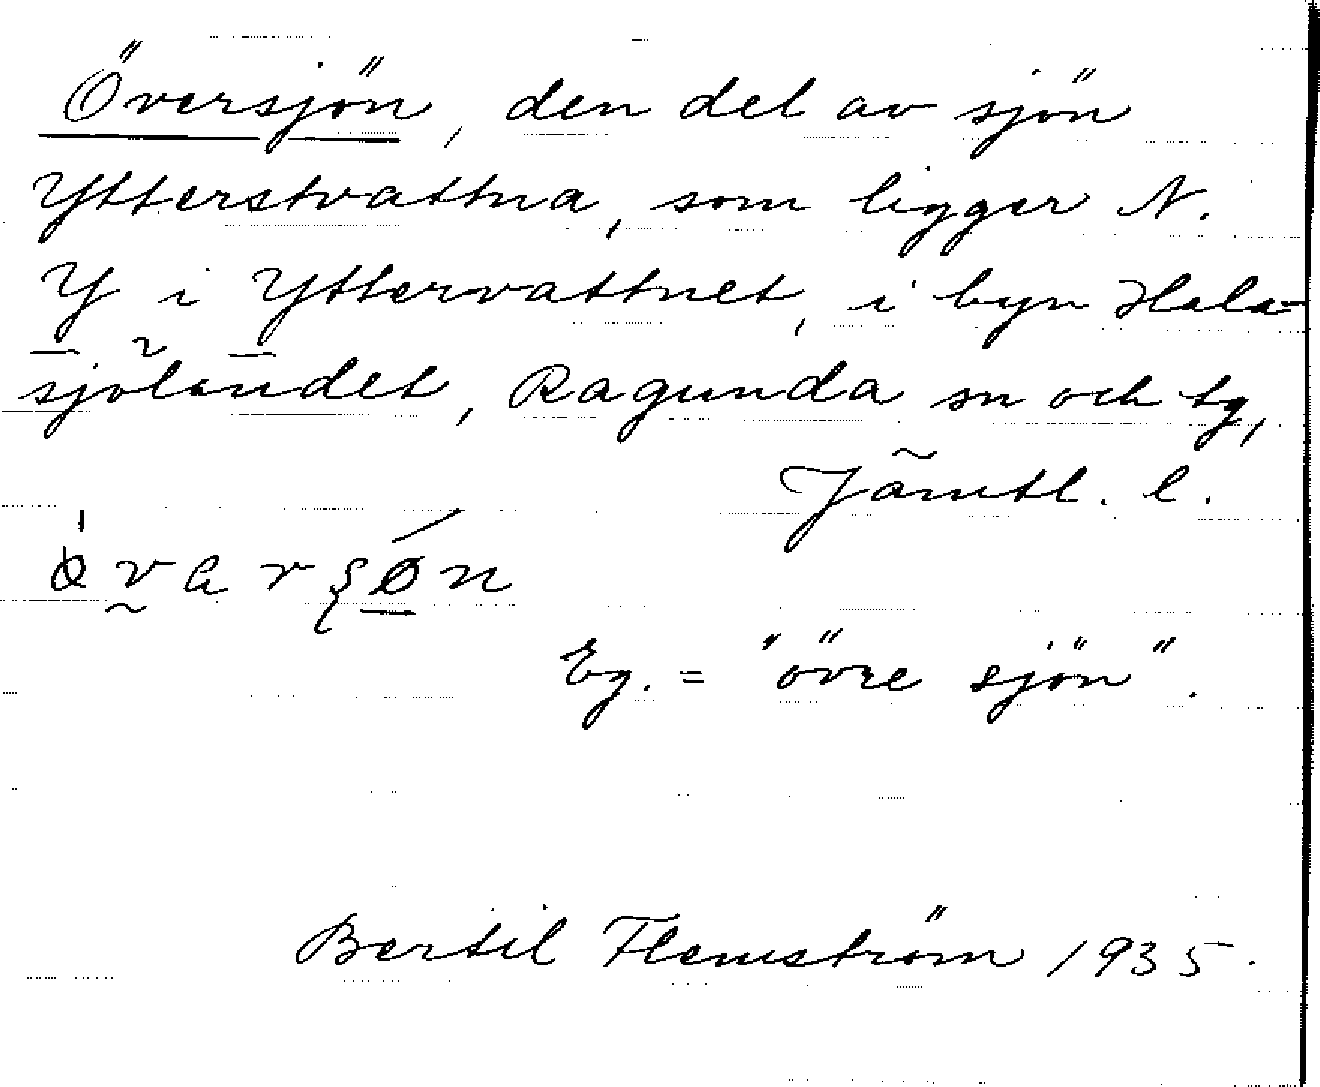 Översjön, den del av sjön
Ytterstvattna, som ligger N.
Y i Yttervattnet, i byn Hala-
sjölandet, Ragunda sn och tg,
Jämtl. l.
ø̀varʂøn
Eg. = "övre sjön".
Bertil Flemström 1935.